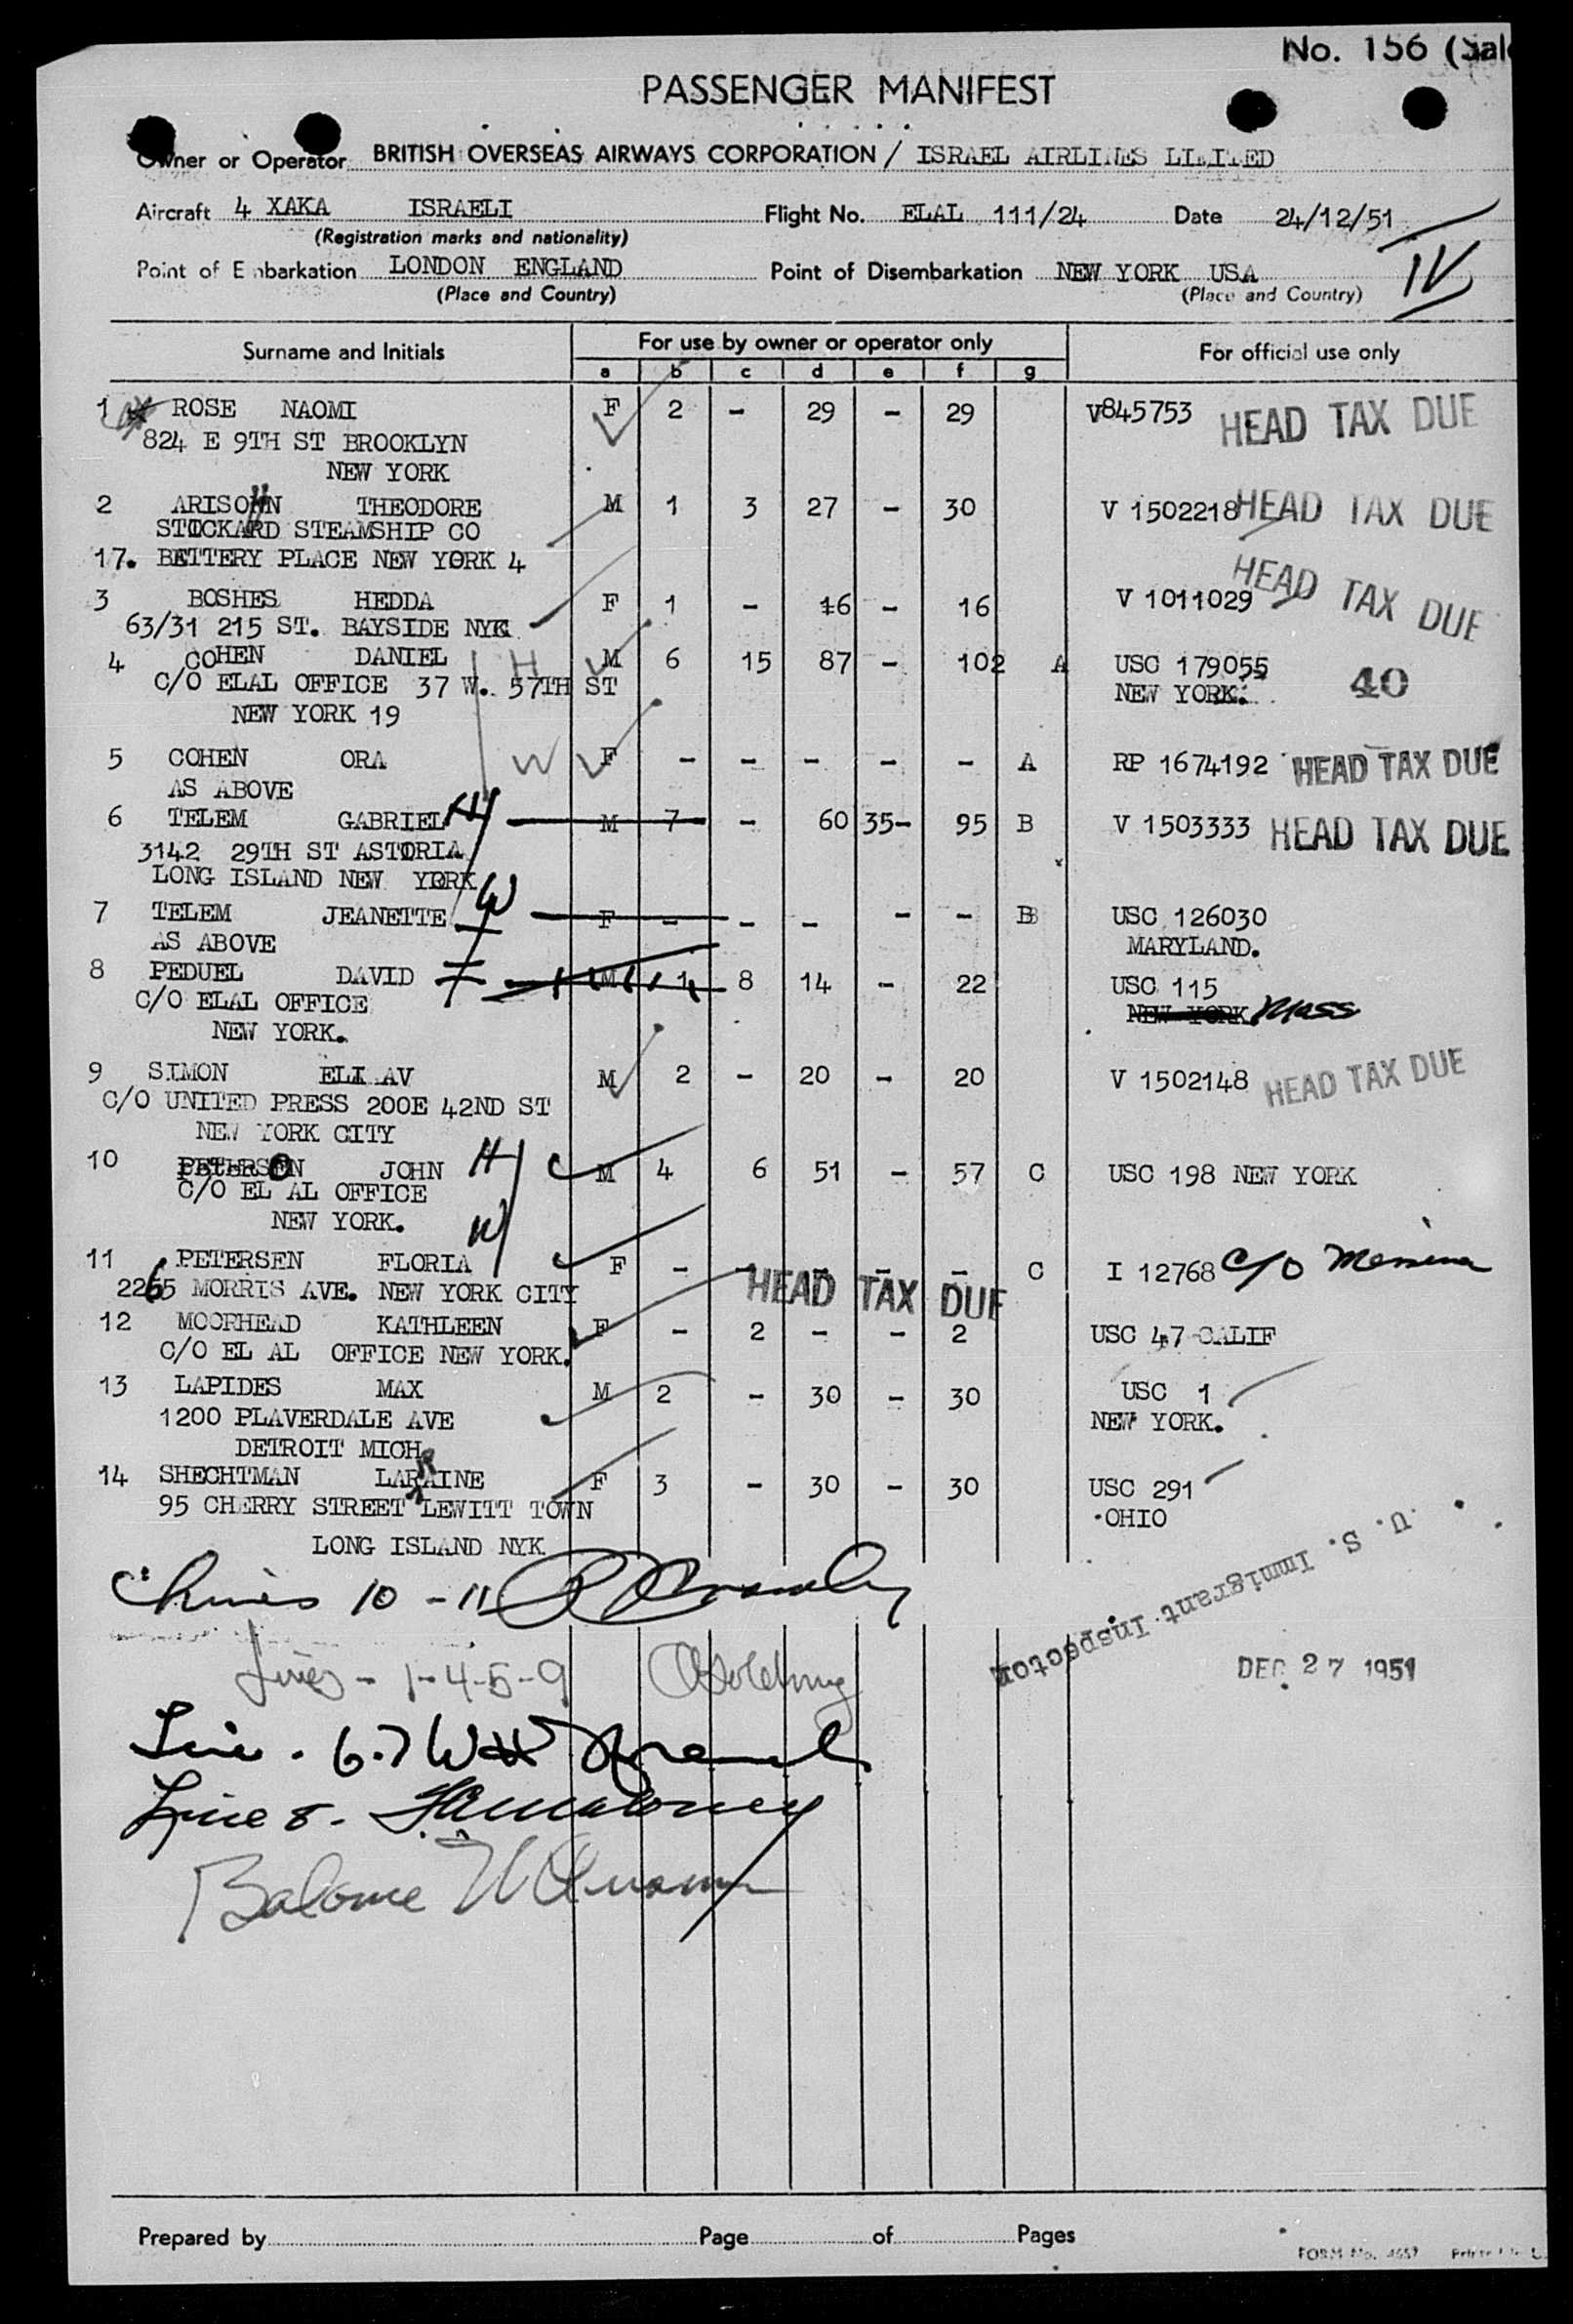 No. 156 (Sal
PASSENGER MANIFEST
Owner or Operator BRITISH OVERSEAS AIRWAYS CORPORATION / ISRAEL AIRLINES LIMITED
Aircraft 4 XAKA ISRAELI Flight No. ELAL 111/24 Date 24/12/51
(Registration marks and nationality)
IV
Point of Embarkation LONDON ENGLAND Point of Disembarkation NEW YORK USA
(Place and Country) (Place and Country)
Surname and Initials For use by owner or operator only For official use only
a b c d e f g
1 ROSE NAOMI F 2 - 29 - 29 V845753 HEAD TAX DUE
824 E 9TH ST BROOKLYN
NEW YORK
2 ARISOHN THEODORE M 1 3 27 - 30 V 1502218 HEAD TAX DUE
STOCKARD STEAMSHIP CO
17. BATTERY PLACE NEW YORK 4
3 BOSHES HEDDA F 1 - 16 - 16 V 1011029 HEAD TAX DUE
63/31 215 ST. BAYSIDE NYK
4 COHEN DANIEL H M 6 15 87 - 102 A USC 179055
C/O ELAL OFFICE 37 W. 57TH ST NEW YORK. 40
NEW YORK 19
5 COHEN ORA W F - - - - - A RP 1674192 HEAD TAX DUE
AS ABOVE
6 TELEM GABRIEL H M 7 - 60 35- 95 B V 1503333 HEAD TAX DUE
3142 29TH ST ASTORIA
LONG ISLAND NEW YORK
7 TELEM JEANETTE W F - - - - - B USC 126030
AS ABOVE MARYLAND.
8 PEDUEL DAVID M 1 8 14 - 22 USC 115
C/O ELAL OFFICE NEW YORK. Mass
NEW YORK.
9 SIMON ELI AV M 2 - 20 - 20 V 1502148 HEAD TAX DUE
C/O UNITED PRESS 200E 42ND ST
NEW YORK CITY
10 PETERSON JOHN H M 4 6 51 - 57 C USC 198 NEW YORK
C/O EL AL OFFICE
NEW YORK. W
11 PETERSEN FLORIA F - - - - - C I 12768 C/O
2265 MORRIS AVE. NEW YORK CITY HEAD TAX DUE
12 MOORHEAD KATHLEEN F - 2 - - 2 USC 47 CALIF
C/O EL AL OFFICE NEW YORK.
13 LAPIDES MAX M 2 - 30 - 30 USC 1
1200 PLAVERDALE AVE NEW YORK.
DETROIT MICH
14 SHECHTMAN LARAINE F 3 - 30 - 30 USC 291
95 CHERRY STREET LEWITT TOWN OHIO
LONG ISLAND NYK
10 - 11
U. S. Immigrant Inspector
Lines - 1-4-5-9
DEC 27 1951
Line . 6.7
Line 8.
Balance
Prepared by Page of Pages
FORM No. 4657